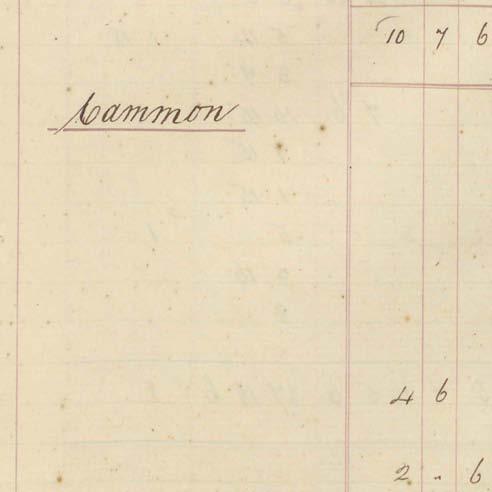 10 7 6
Cammon
4 6
2 " 6